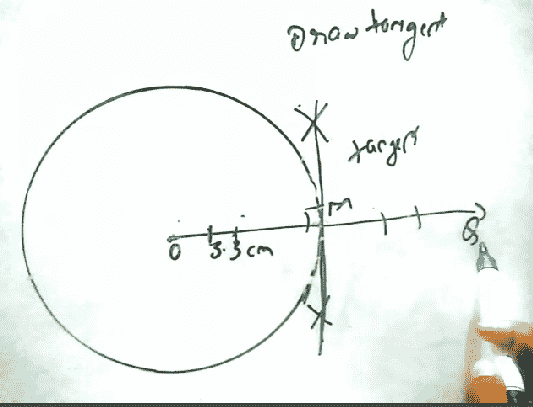 Draw tangent
tangent
M
O 3.3 cm
Q